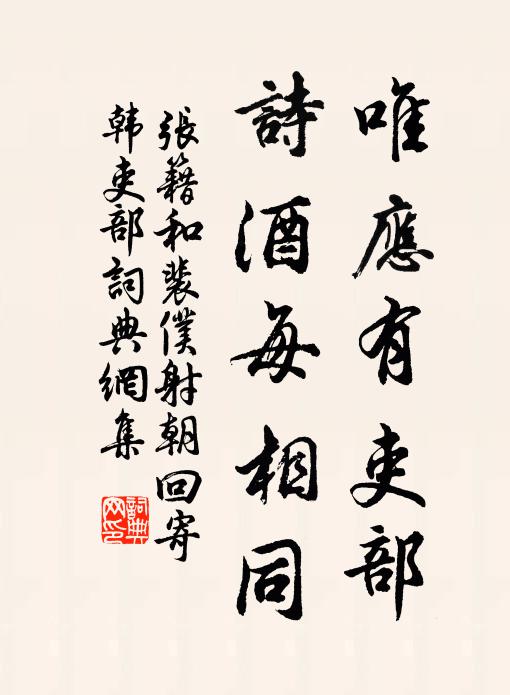 唯應有吏部
詩酒每相同
張籍和裴僕射朝回寄
韩吏部詞典網集
詞典网印